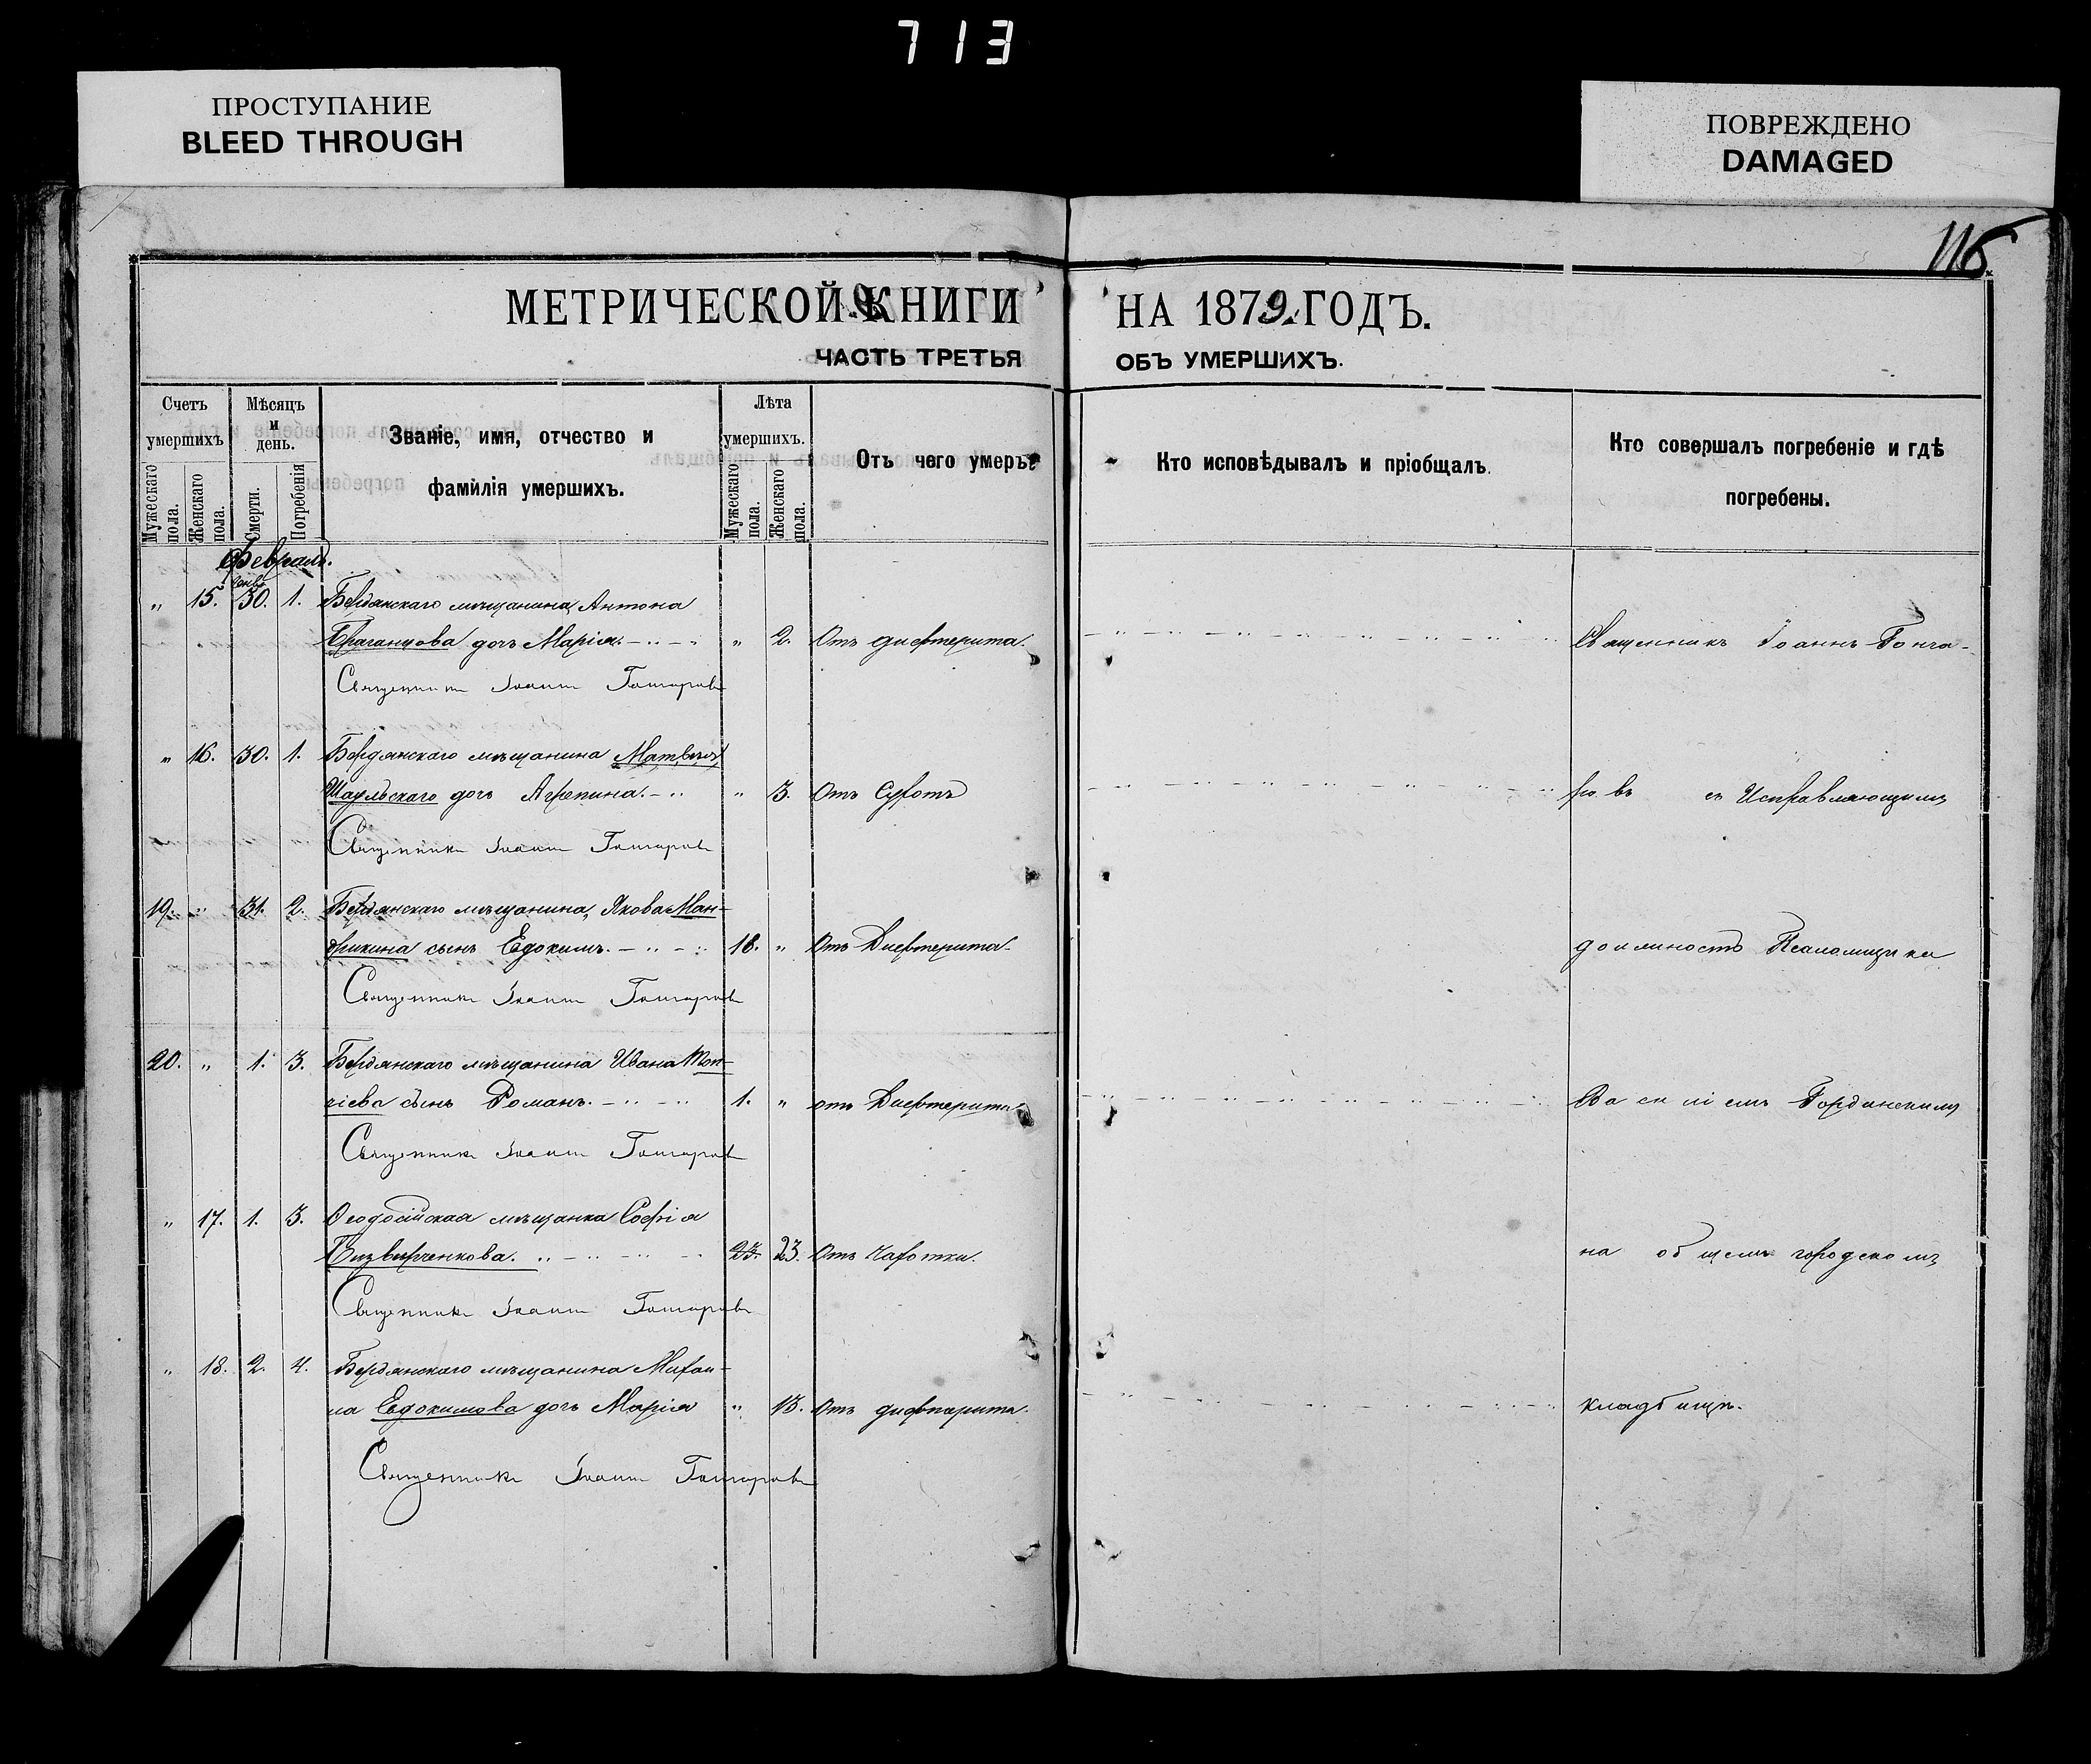 713
ПРОСТУПАНИЕ
BLEED THROUGH
ПОВРЕЖДЕНО
DAMAGED
116.
МЕТРИЧЕСКОЙ КНИГИ НА 1879 ГОДЪ.
ЧАСТЬ ТРЕТЬЯ ОБЪ УМЕРШИХЪ.
Счетъ умершихъ
Мужескаго пола.
Женскаго пола.
Мѣсяцъ и день.
Смерти.
Погребенія
Званіе, имя, отчество и
фамилія умершихъ.
Лѣта умершихъ.
Мужескаго пола.
Женскаго пола.
Отъ чего умеръ
Кто исповѣдывалъ и пріобщалъ.
Кто совершалъ погребеніе и гдѣ
погребены.
Февраль.
Янв.
„ 15. 30. 1. Бердянскаго мѣщанина Антона
дочь Марія. „ 2. Отъ дифтерита. Священникъ Іоаннъ Гонча-
Священникъ Іоаннъ Гончаровъ
„ 16. 30. 1. Бердянскаго мѣщанина Матвея
дочь Агрепина. „ 3. Отъ ровъ съ Исправляющимъ
Священникъ Іоаннъ Гончаровъ
19. „ 31. 2. Бердянскаго мѣщанина, Якова Ман-
дрикина сынъ Евдокимъ. 18. „ Отъ Дифтерита должность Псаломщика
Священникъ Іоаннъ Гончаровъ
20. „ 1. 3. Бердянскаго мѣщанина Ивана
сынъ Романъ. 1. „ отъ Дифтерита Василіемъ Горданскимъ
Священникъ Іоаннъ Гончаровъ
„ 17. 1. 3. Ѳеодосійская мѣщанка Софія
23. 23. Отъ Чахотки. на общемъ городскомъ
Священникъ Іоаннъ Гончаровъ
„ 18. 2. 4. Бердянскаго мѣщанина Михаи-
ла Евдокимова дочь Марія „ 13. Отъ дифтерита. кладбищѣ.
Священникъ Іоаннъ Гончаровъ